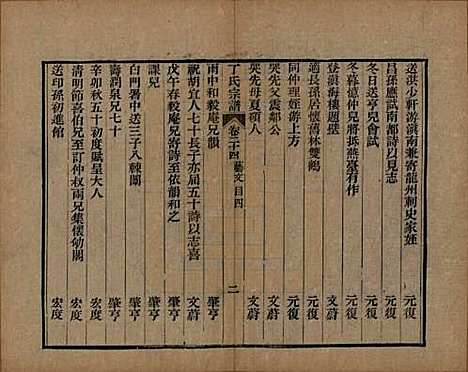 送洪少軒游滇南兼寄龍州刺史家姪 元復
昌孫應試南都詩以見志 元復
冬日送亨兒會試 元復
登滇海樓題壁 元復
冬暮憶仲兒將抵燕臺有作 元復
適長孫居懷舊林雙鶴 元復
同仲理姪游上方 元復
哭先父震鄰公 文蔚
哭先母夏碩人 文蔚
丁氏宗譜 卷二十四 藝文目四 二
雨中和毅庵兄韻 肇亨
祝胡宜人七十長子亦届五十詩以志喜 文蔚
戊午春毅庵兄寄詩至依韻和之 肇亨
課兒 肇亨
白門署中送三子入棘闈 肇亨
壽潤泉兄七十 肇亨
辛卯秋五十初度賦呈大人 宏度
清明節喜伯兄至訂仲叔兩兄集懷幼闕 宏度
送印孫初進館 宏度